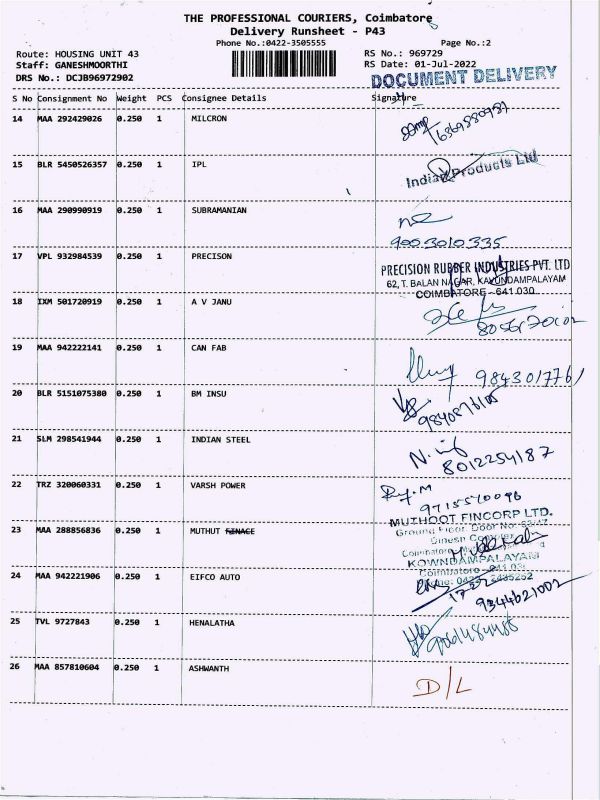 THE PROFESSIONAL COURIERS, Coimbatore
Delivery Runsheet - P43
Phone No.:0422-3505555 Page No.:2
Route: HOUSING UNIT 43 RS No.: 969729
Staff: GANESHMOORTHI RS Date: 01-Jul-2022
DRS No.: DCJB96972902
DOCUMENT DELIVERY
S No Consignment No Weight PCS Consignee Details Signature
14 MAA 292429026 0.250 1 MILCRON
15 BLR 5450526357 0.250 1 IPL
Indian Products Ltd
16 MAA 290990919 0.250 1 SUBRAMANIAN
9003010335
17 VPL 932984539 0.250 1 PRECISON
PRECISION RUBBER INDUSTRIES PVT. LTD
62, T. BALAN NAGAR, KAVUNDAMPALAYAM
COIMBATORE - 641 030
18 IXM 501720919 0.250 1 A V JANU
19 MAA 942222141 0.250 1 CAN FAB
9843017761
20 BLR 5151075380 0.250 1 BM INSU
9840876105
21 SLM 298541944 0.250 1 INDIAN STEEL
8012254187
22 TRZ 320060331 0.250 1 VARSH POWER
9715570096
23 MAA 288856836 0.250 1 MUTHUT FINACE
MUTHOOT FINCORP LTD.
Ground Floor, Door No:
Dinesh Complex
KOWNDAMPALAYAM
24 MAA 942221906 0.250 1 EIFCO AUTO
9344621002
25 TVL 9727843 0.250 1 HENALATHA
26 MAA 857810604 0.250 1 ASHWANTH
D/L